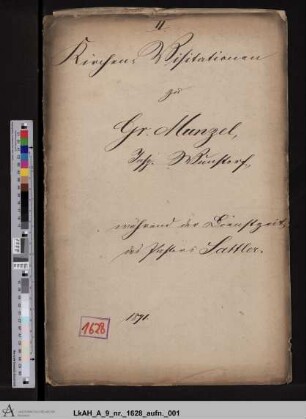 II.
Kirchen-Visitationen
zu
Gr: Munzel,
Insp. Wunstorf,
während der Dienstzeit
des Pastors Sattler.
1871.
1628
LkAH_A_9_nr._1628_aufn._001